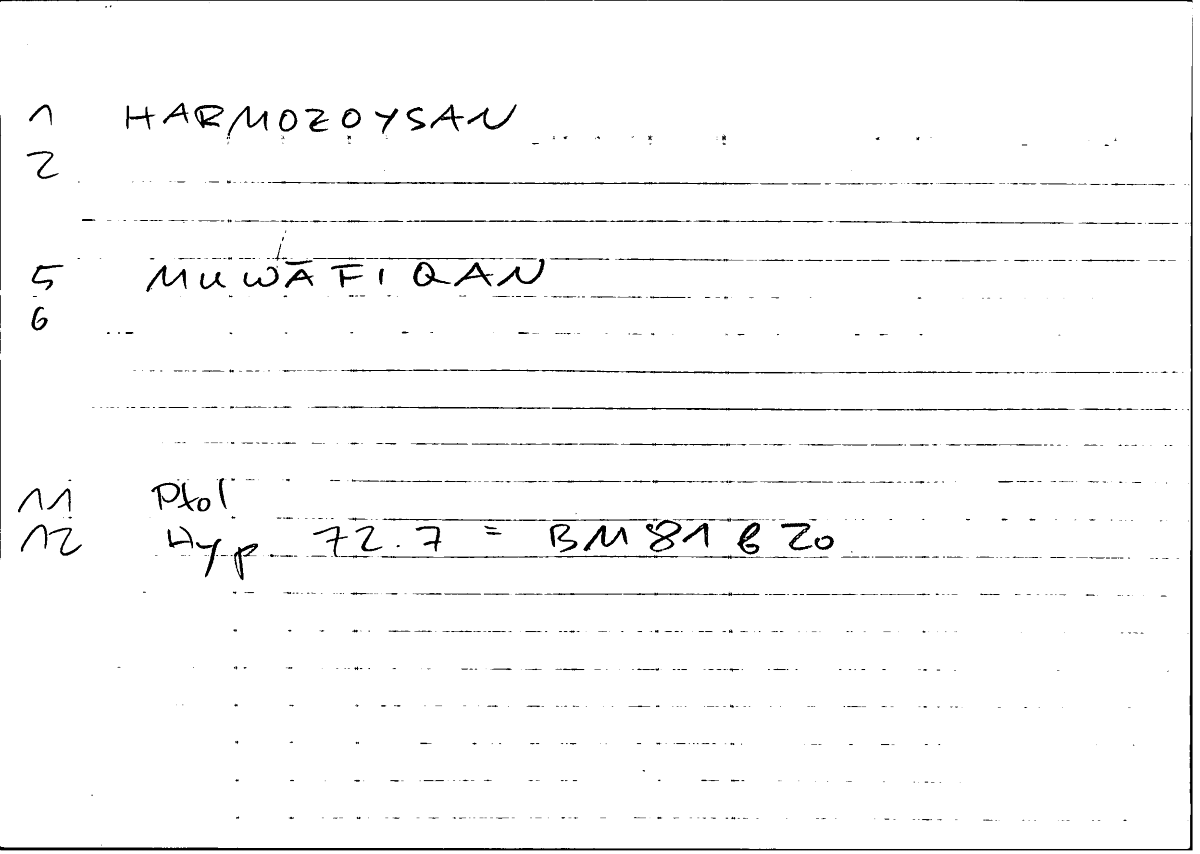 1 HARMOZOYSAN
2
5 MUWĀFIQAN
6
11 Ptol
12 Hyp 72.7 = BM 81 b 20